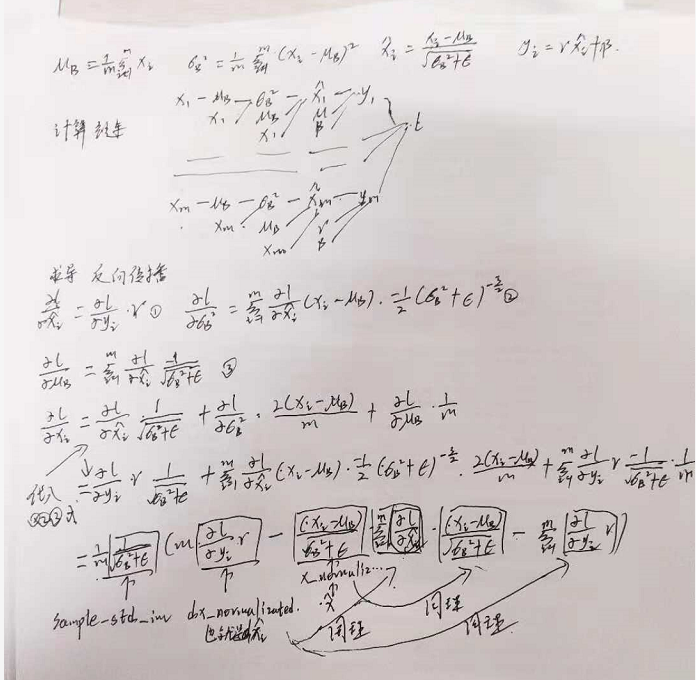 μ_B = 1/m Σ_{i=1}^m x_i   σ_B² = 1/m Σ_{i=1}^m (x_i - μ_B)²   x̂_i = (x_i - μ_B)/√(σ_B²+ε)   y_i = γ x̂_i + β.
x_1 - μ_B - σ_B² - x̂_1 - y_1
x_1 μ_B μ
计算 x_1 B L
x_m - μ_B - σ_B² - x̂_m - y_m
x_m μ_B γ
x_m B
求导 反向传播
∂L/∂x̂_i = ∂L/∂y_i · γ ①   ∂L/∂σ_B² = Σ_{i=1}^m ∂L/∂x̂_i (x_i - μ_B) · -1/2 (σ_B² + ε)^{-3/2} ②
∂L/∂μ_B = Σ_{i=1}^m ∂L/∂x̂_i -1/√(σ_B²+ε) ③
∂L/∂x_i = ∂L/∂x̂_i · 1/√(σ_B²+ε) + ∂L/∂σ_B² · 2(x_i - μ_B)/m + ∂L/∂μ_B · 1/m
代入 = ∂L/∂y_i γ 1/√(σ_B²+ε) + Σ_{i=1}^m ∂L/∂x̂_i (x_i - μ_B) · -1/2 (σ_B² + ε)^{-3/2} · 2(x_i - μ_B)/m + Σ_{i=1}^m ∂L/∂y_i γ -1/√(σ_B²+ε) · 1/m
①②③式
= 1/m 1/√(σ_B²+ε) (m ∂L/∂y_i γ - (x_i - μ_B)/√(σ_B²+ε) Σ_{i=1}^m ∂L/∂x̂_i · (x_i - μ_B)/√(σ_B²+ε) - Σ_{i=1}^m ∂L/∂y_i γ)
x_normaliz...
sample_std_inv dx_normalizated. x̂ 同理
同理 同理